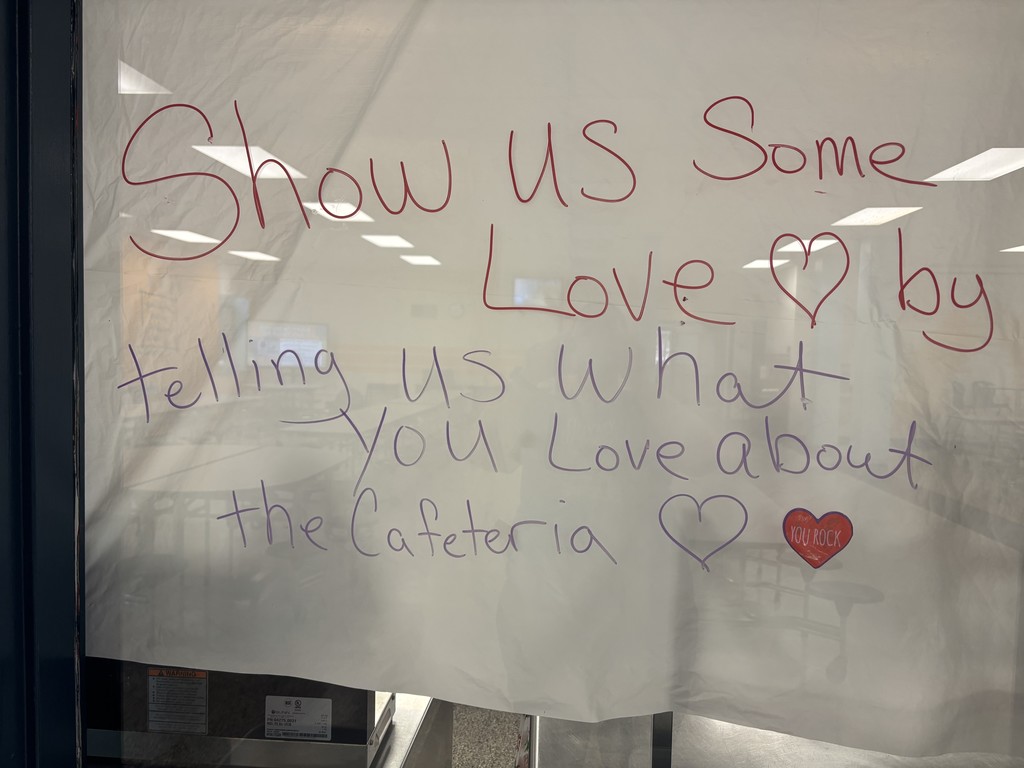 Show us Some
Love by
telling us what
you Love about
the Cafeteria
YOU ROCK
WARNING